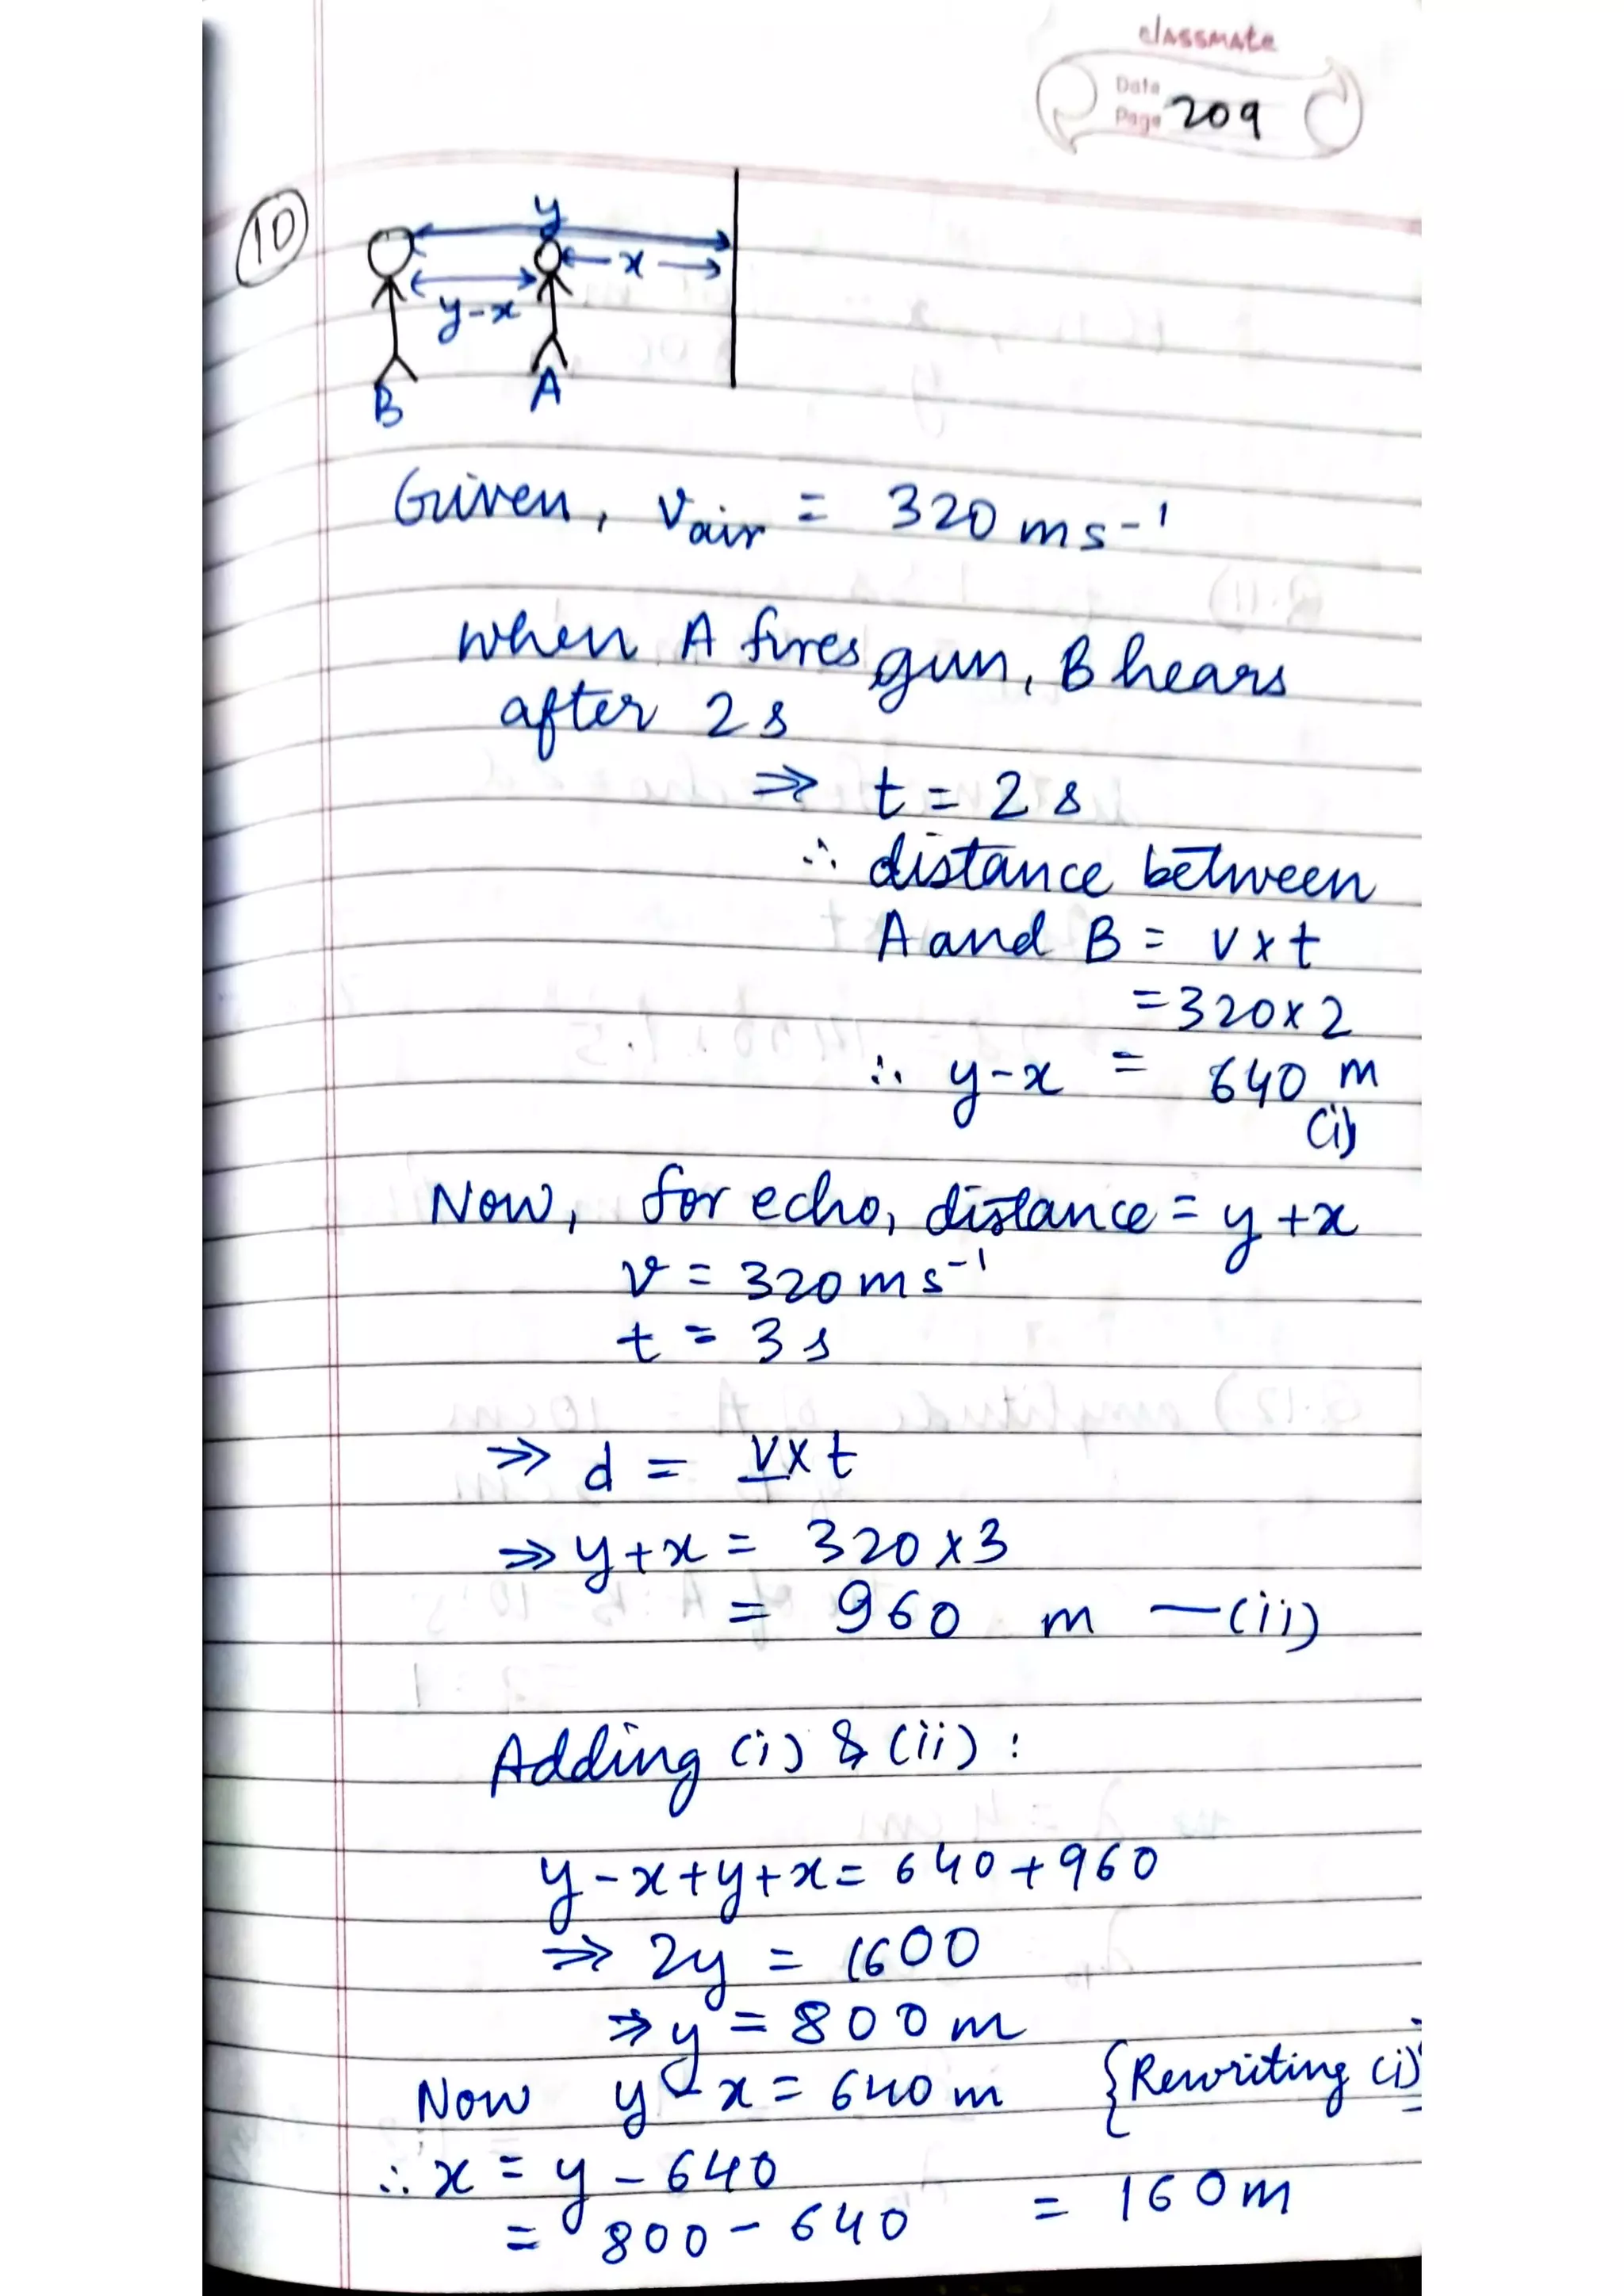 classmate
Date
Page 209
10
y
x
y-x
B
A
Given, vair = 320 ms-1
when A fires gun, B hears
after 2s
⇒ t = 2s
∴ distance between
A and B = v×t
=320×2
∴ y-x = 640 m
(i)
Now, for echo, distance = y+x
v = 320 ms-1
t = 3s
⇒ d = v×t
⇒ y+x = 320×3
= 960 m —(ii)
Adding (i) & (ii) :
y-x+y+x= 640+960
⇒ 2y = 1600
⇒ y = 800 m
Now y-x = 640m {Rewriting (i)
∴ x = y-640
= 800-640 = 160m